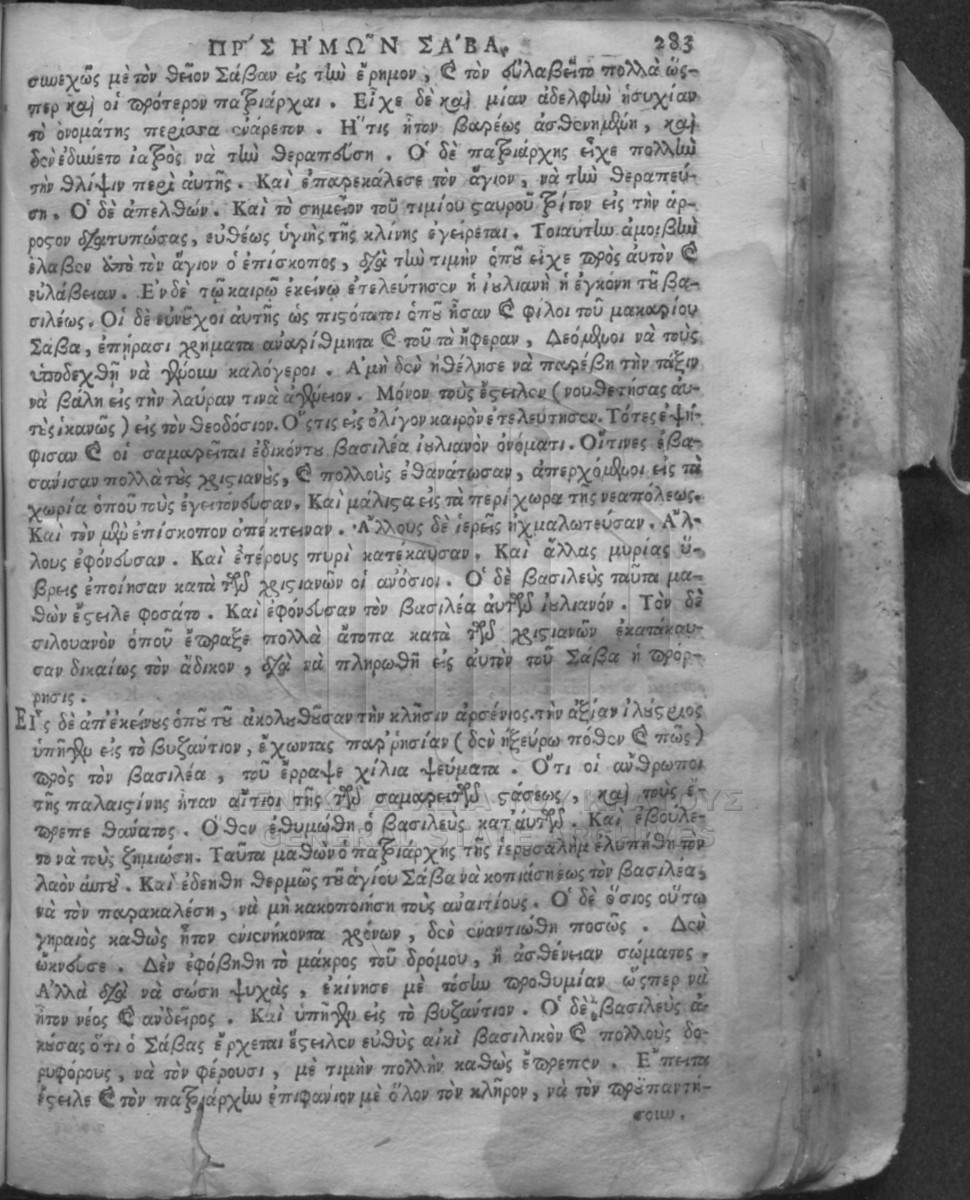 ΠΡ'Σ Η'ΜΩ͂Ν ΣΑ'ΒΑ. 283
συνεχῶς μὲ τὸν θεῖον Σάβαν εἰς τὴν ἔρημον, καὶ τὸν εὐλαβεῖτο πολλὰ ὥσ-
περ καὶ οἱ πρότερον πατριάρχαι. Εἶχε δὲ καὶ μίαν ἀδελφὴν ἡσυχίαν
τὸ ὀνομάτης περίσσα ἐνάρετον. Ἥτις ἦτον βαρέως ἀσθενημένη, καὶ
δὲν ἐδύνετο ἰατρὸς νὰ τὴν θεραπεύση. Ὁ δὲ πατριάρχης εἶχε πολλὴν
τὴν θλίψιν περὶ αὐτῆς. Καὶ ἐπαρεκάλεσε τὸν ἅγιον, νὰ τὴν θεραπεύ-
ση. Ὁ δὲ ἀπελθών. Καὶ τὸ σημεῖον τοῦ τιμίου σταυροῦ τρίτον εἰς τὴν ἄρ-
ροστον διατυπώσας, εὐθέως ὑγιὴς τῆς κλίνης ἐγείρεται. Τοιαύτην ἀμοιβὴν
ἔλαβεν ἀπὸ τὸν ἅγιον ὁ ἐπίσκοπος, διὰ τὴν τιμὴν ὁποῦ εἶχε πρὸς αὐτὸν καὶ
εὐλάβειαν. Ἐν δὲ τῷ καιρῷ ἐκείνῳ ἐτελεύτησεν ἡ ἰουλιανὴ ἡ ἐγκόνη τοῦ βα-
σιλέως. Οἱ δὲ εὐνοῦχοι αὐτῆς ὡς πιστότατοι ὁποῦ ἦσαν καὶ φίλοι τοῦ μακαρίου
Σάβα, ἐπήρασι χρήματα ἀναρίθμητα καὶ τοῦ τὰ ἤφεραν, Δεόμενοι νὰ τοὺς
ὑποδεχθῆ νὰ γένουν καλόγεροι. Ἀμὴ δὲν ἠθέλησε νὰ παρέβη τὴν τάξιν
νὰ βάλη εἰς τὴν λαύραν τινὰ ἀγένειον. Μόνον τοὺς ἔστειλεν (νουθετήσας αὐ-
τοὺς ἱκανῶς) εἰς τὸν Θεοδόσιον. Ὅστις εἰς ὀλίγον καιρὸν ἐτελεύτησεν. Τότες ἐψή-
φισαν καὶ οἱ σαμαρεῖται ἐδικόντου βασιλέα ἰουλιανὸν ὀνόματι. Οἵτινες ἐβα-
σάνισαν πολλὰ τοὺς χριστιανοὺς, καὶ πολλοὺς ἐθανάτωσαν, ἀπερχόμενοι εἰς τὰ
χωρία ὁποῦ τοὺς ἐγειτόνευσαν. Καὶ μάλιστα εἰς τὰ περίχωρα τῆς νεαπόλεως.
Καὶ τὸν μὲν ἐπίσκοπον ἀπέκτειναν. Ἄλλους δὲ ἱερεῖς ἠχμαλωτεύσαν. Ἄλ-
λους ἐφόνευσαν. Καὶ ἑτέρους πυρὶ κατέκαυσαν. Καὶ ἄλλας μυρίας ὕ-
βρεις ἐποίησαν κατὰ τῶν χριστιανῶν οἱ ἀνόσιοι. Ὁ δὲ βασιλεὺς ταῦτα μα-
θὼν ἔστειλε φοσάτο. Καὶ ἐφόνευσαν τὸν βασιλέα αὐτῶν ἰουλιανόν. Τὸν δὲ
σιλουανὸν ὁποῦ ἔπραξε πολλὰ ἄτοπα κατὰ τῶν χριστιανῶν ἐκατάκαυ-
σαν δικαίως τὸν ἄδικον, διὰ νὰ πληρωθῆ εἰς αὐτὸν τοῦ Σάβα ἡ πρόρ-
ρησις.
Εἷς δὲ ἀπ' ἐκείνους ὁποῦ τοῦ ἀκολουθοῦσαν τὴν κλῆσιν ἀρσένιος, τὴν ἀξίαν ἰλούστριος
ὑπῆγεν εἰς τὸ βυζάντιον, ἔχωντας παῤῥησίαν (δὲν ἠξεύρω πόθεν καὶ πῶς)
πρὸς τὸν βασιλέα, τοῦ ἔρραψε χίλια ψεύματα. Ὅτι οἱ ἄνθρωποι
τῆς παλαιστίνης ἦταν αἴτιοι τῆς τῶν σαμαρειτῶν στάσεως, καὶ τοὺς ἔ-
πρεπε θάνατος. Ὅθεν ἐθυμώθη ὁ βασιλεὺς κατ' αὐτῶν. Καὶ ἐβούλε-
το νὰ τοὺς ζημιώση. Ταῦτα μαθὼν ὁ πατριάρχης τῆς ἱερουσαλὴμ ἐλυπήθη τὸν
λαὸν αὐτοῦ. Καὶ ἐδεήθη θερμῶς τοῦ ἁγίου Σάβα νὰ κοπιάση ἕως τὸν βασιλέα,
νὰ τὸν παρακαλέση, νὰ μὴ κακοποιήση τοὺς ἀναιτίους. Ὁ δὲ ὅσιος οὕτω
γηραιὸς καθὼς ἦτον ἐνενήκοντα χρόνων, δὲν ἐναντιώθη ποσῶς. Δὲν
ὤκνευσε. Δὲν ἐφόβηθη τὸ μάκρος τοῦ δρόμου, ἢ ἀσθένειαν σώματος.
Ἀλλὰ διὰ νὰ σώση ψυχὰς, ἐκίνησε μὲ τόσην προθυμίαν ὥσπερ νὰ
ἦτον νέος καὶ ἀνδεῖρος. Καὶ ὑπῆγεν εἰς τὸ βυζάντιον. Ὁ δὲ βασιλεὺς ἀ-
κούσας ὅτι ὁ Σάβας ἔρχεται ἔστειλεν εὐθὺς βασιλικὸν καὶ πολλοὺς δο-
ρυφόρους, νὰ τὸν φέρουσι, μὲ τιμὴν πολλὴν καθὼς ἔπρεπεν. Ἔπειτα
ἔστειλε καὶ τὸν πατριάρχην ἐπιφάνιον μὲ ὅλον τὸν κλῆρον, νὰ τὸν προϋπαντή-
σουν.
ΓΕΝΙΚΑ ΑΡΧΕΙΑ ΤΟΥ ΚΡΑΤΟΥΣ
GENERAL STATE ARCHIVES